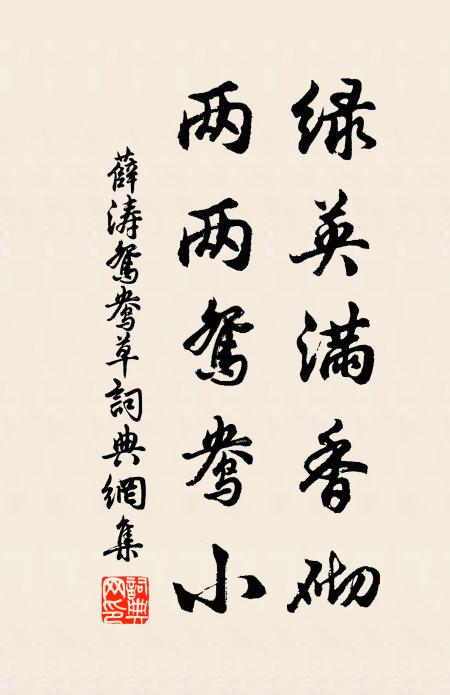 绿英满香砌
两两鸳鸯小
薛涛鸳鸯草詞典網集
詞典网印